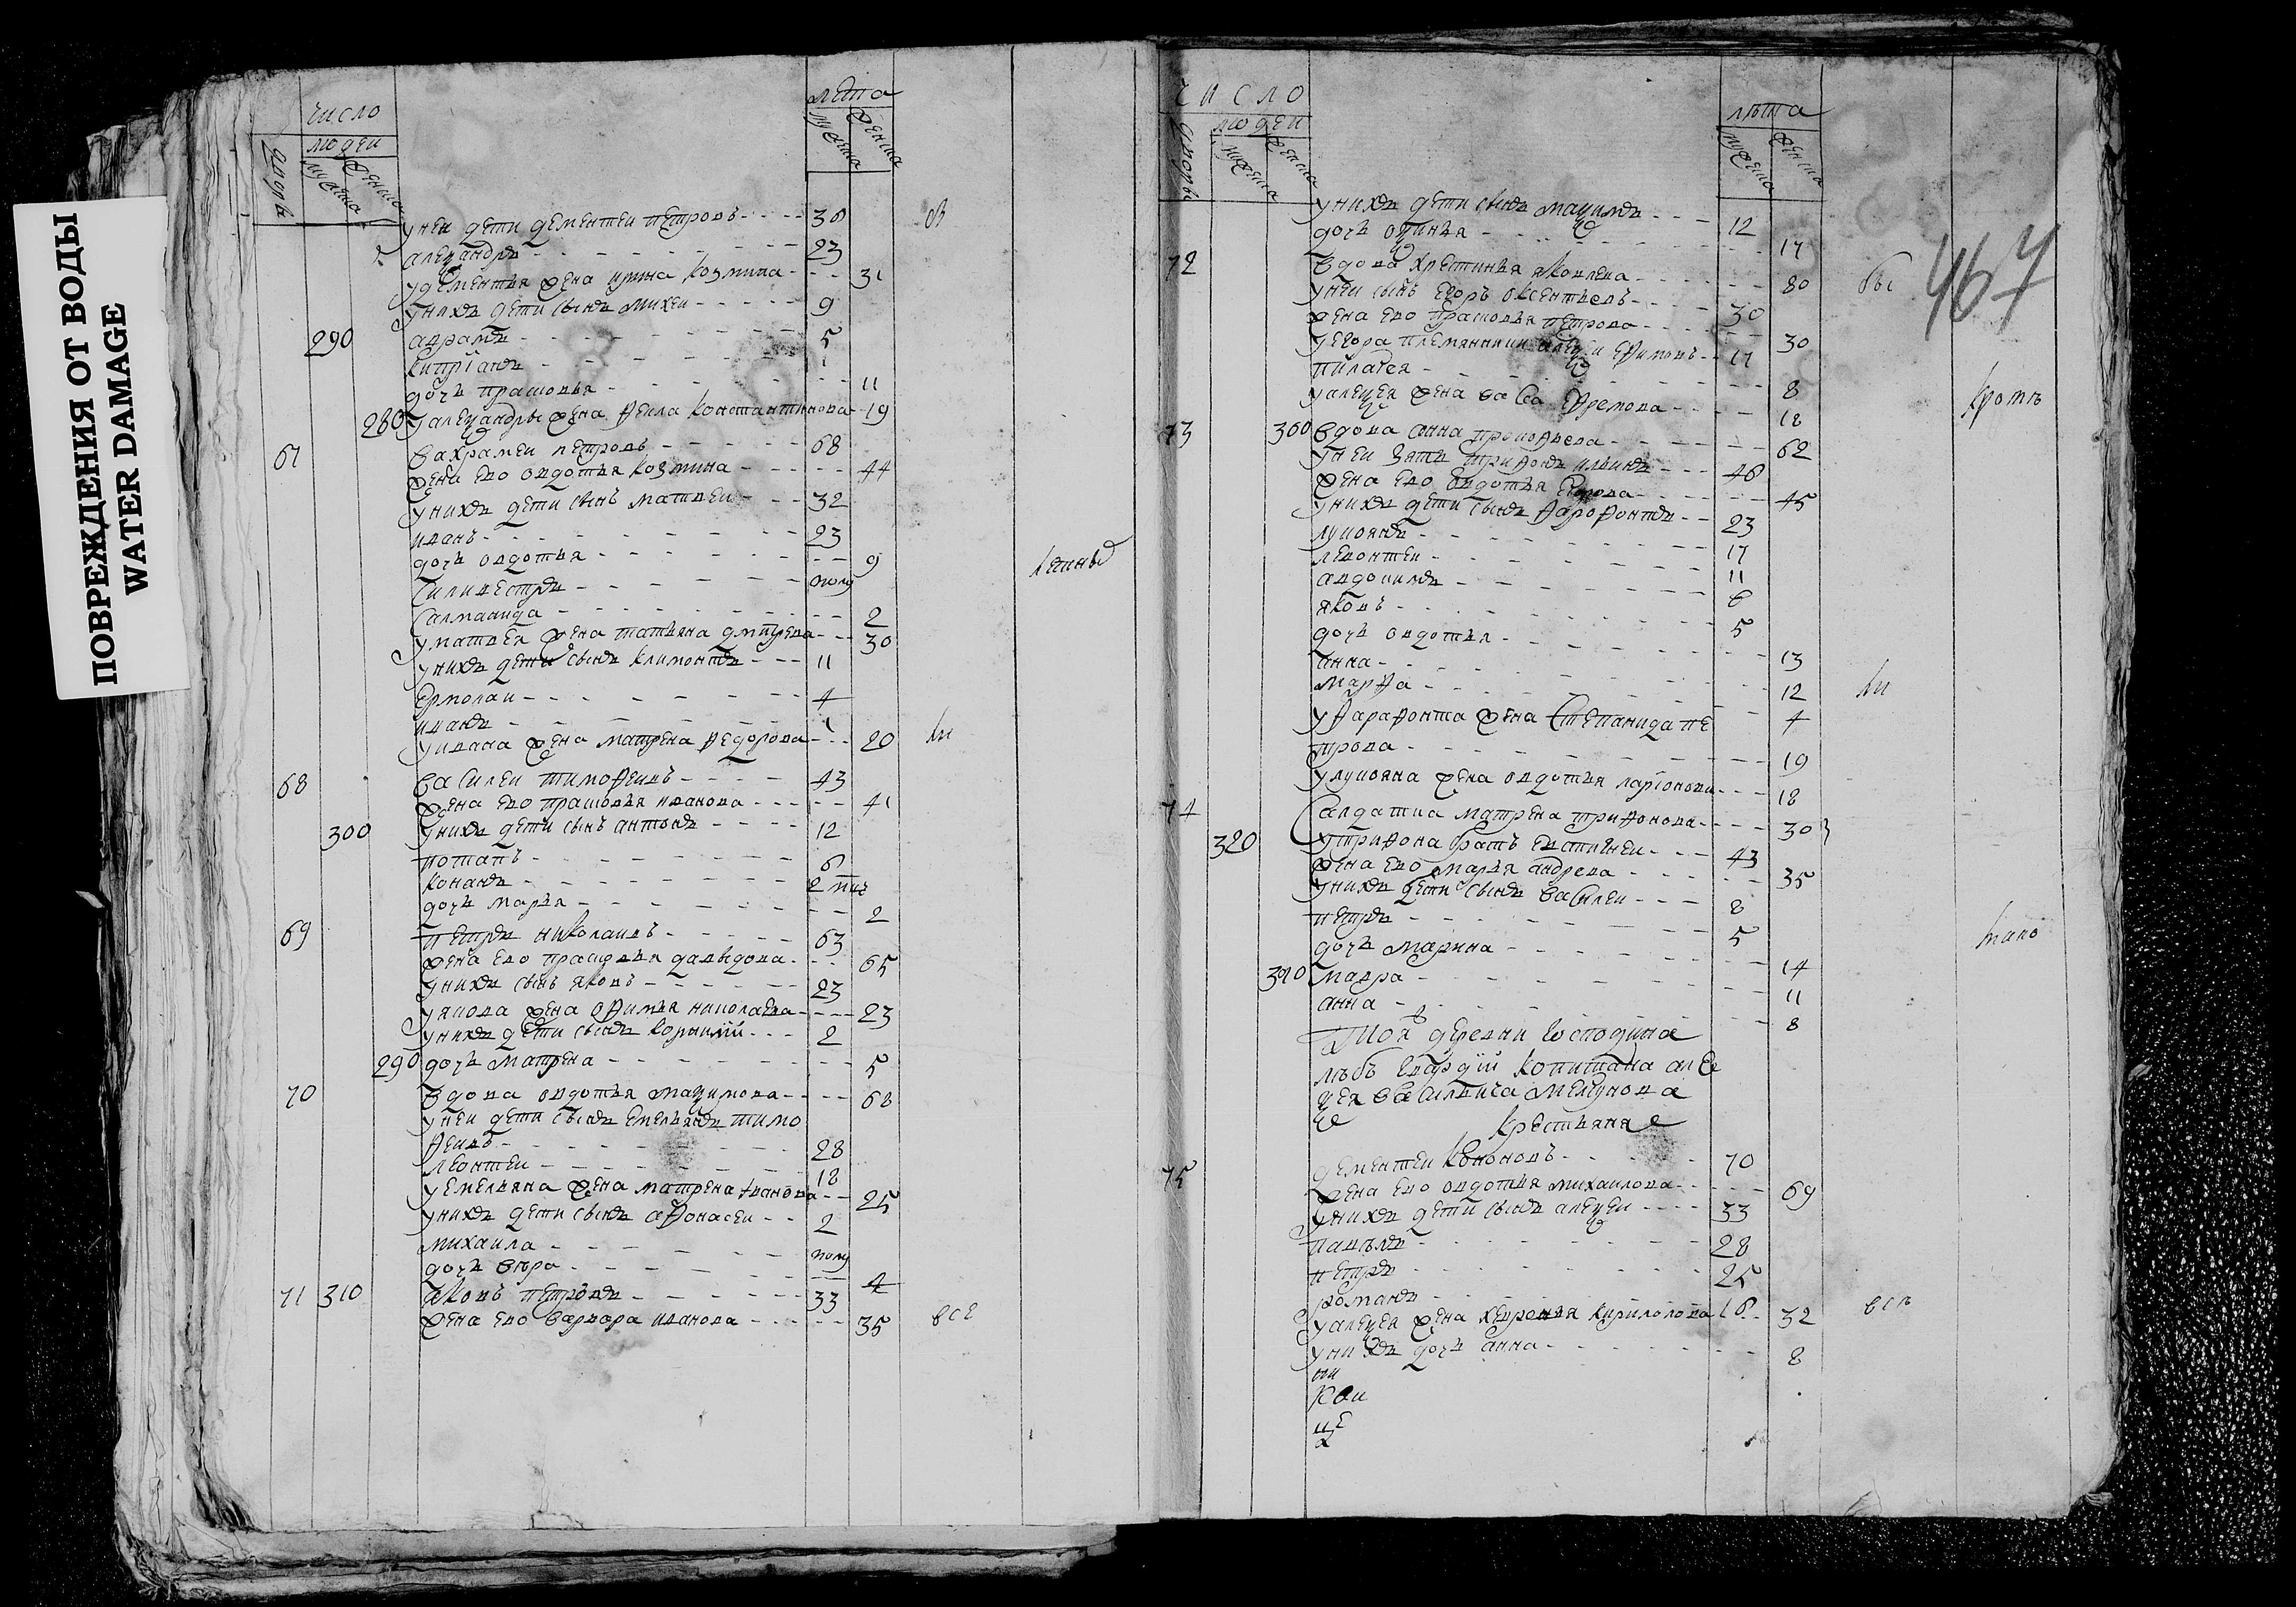 ПОВРЕЖДЕНИЯ ОТ ВОДЫ
WATER DAMAGE
число
людеи
дворы
мужеска
женска
лѣта
мужеска
женска
у неи дети дементеи петровъ 36
александръ 23
у дементья жена ирина козмина 31
у нихъ дети сынъ михеи 9
290 аврамъ 5
кипріанъ 1
дочь прасковья 11
280 у александры жена фекла константинова 19
67 вахрамеи петровъ 68
жена ево овдотья козмина 44
у нихъ дети сынъ матвеи 32
иванъ 23
дочь овдотья 9
силивестръ полу
салманида 2
у матвея жена татьяна дмитрева 30
у нихъ дети сынъ климонтъ 11
ермолаи 4
иванъ 1
у ивана жена матрена федорова 20
68 василеи тимофеивъ 43
жена ево прасковья иванова 41
300 у нихъ дети сынъ антонъ 12
потапъ 6
конанъ 2
дочь марья 2
69 петръ николаивъ 63
жена ево прасковья давыдова 65
у нихъ сынъ яковъ 23
у якова жена офимья николаева 23
у нихъ дети сынъ корнилій 2
290 дочь матрена 5
70 вдова овдотья маѯимова 68
у неи дети сынъ емельянъ тимо
феивъ 28
леонтеи 18
у емельяна жена матрена іванова 25
у нихъ дети сынъ афонасеи 2
михаила полу
дочь вера 4
71 310 яковъ петровъ 33
жена ево варвара иванова 35
все
число
людеи
дворы
мужеска
женска
лѣта
мужеска
женска
467
у нихъ дети сынъ маѯимъ 12
дочь оѯинья 17
72 вдова хрестинья яковлева 80
у неи сынъ егоръ оксентьевъ 30
жена ево прасковья петрова 30
у егора племянники алеѯеи ефимовъ 17
пилагея 8
у алеѯея жена васса ефремова 18
73 300 вдова анна прокофьева 62
у неи зять трифонъ ильинъ 46
жена ево овдотья егорова 45
у нихъ дети сынъ фарофонтъ 23
лукоянъ 17
левонтеи 11
авдокимъ 6
яковъ 5
дочь овдотья 13
анна 12
марфа 4
у фарафонта жена степанида пе
трова 19
у лукояна жена овдотья ларіонова 18
74 салдатка матрена трифонова 30
320 у трифона братъ евстигнеи 43
жена ево марья андрева 35
у нихъ дети сынъ василеи 8
петръ 5
дочь марина 14
310 мавра 11
анна 8
тоя деревни господина
лѣбъ гвардіи копитана але
ѯея васильича мелгунова
крестьяне
75 дементеи кононовъ 70
жена ево овдотья михаилова 69
у нихъ дети сынъ алеѯеи 33
павелъ 28
петръ 25
романъ 16
у алеѯея жена хевронья кирилолова 32
у нихъ дочь анна 8